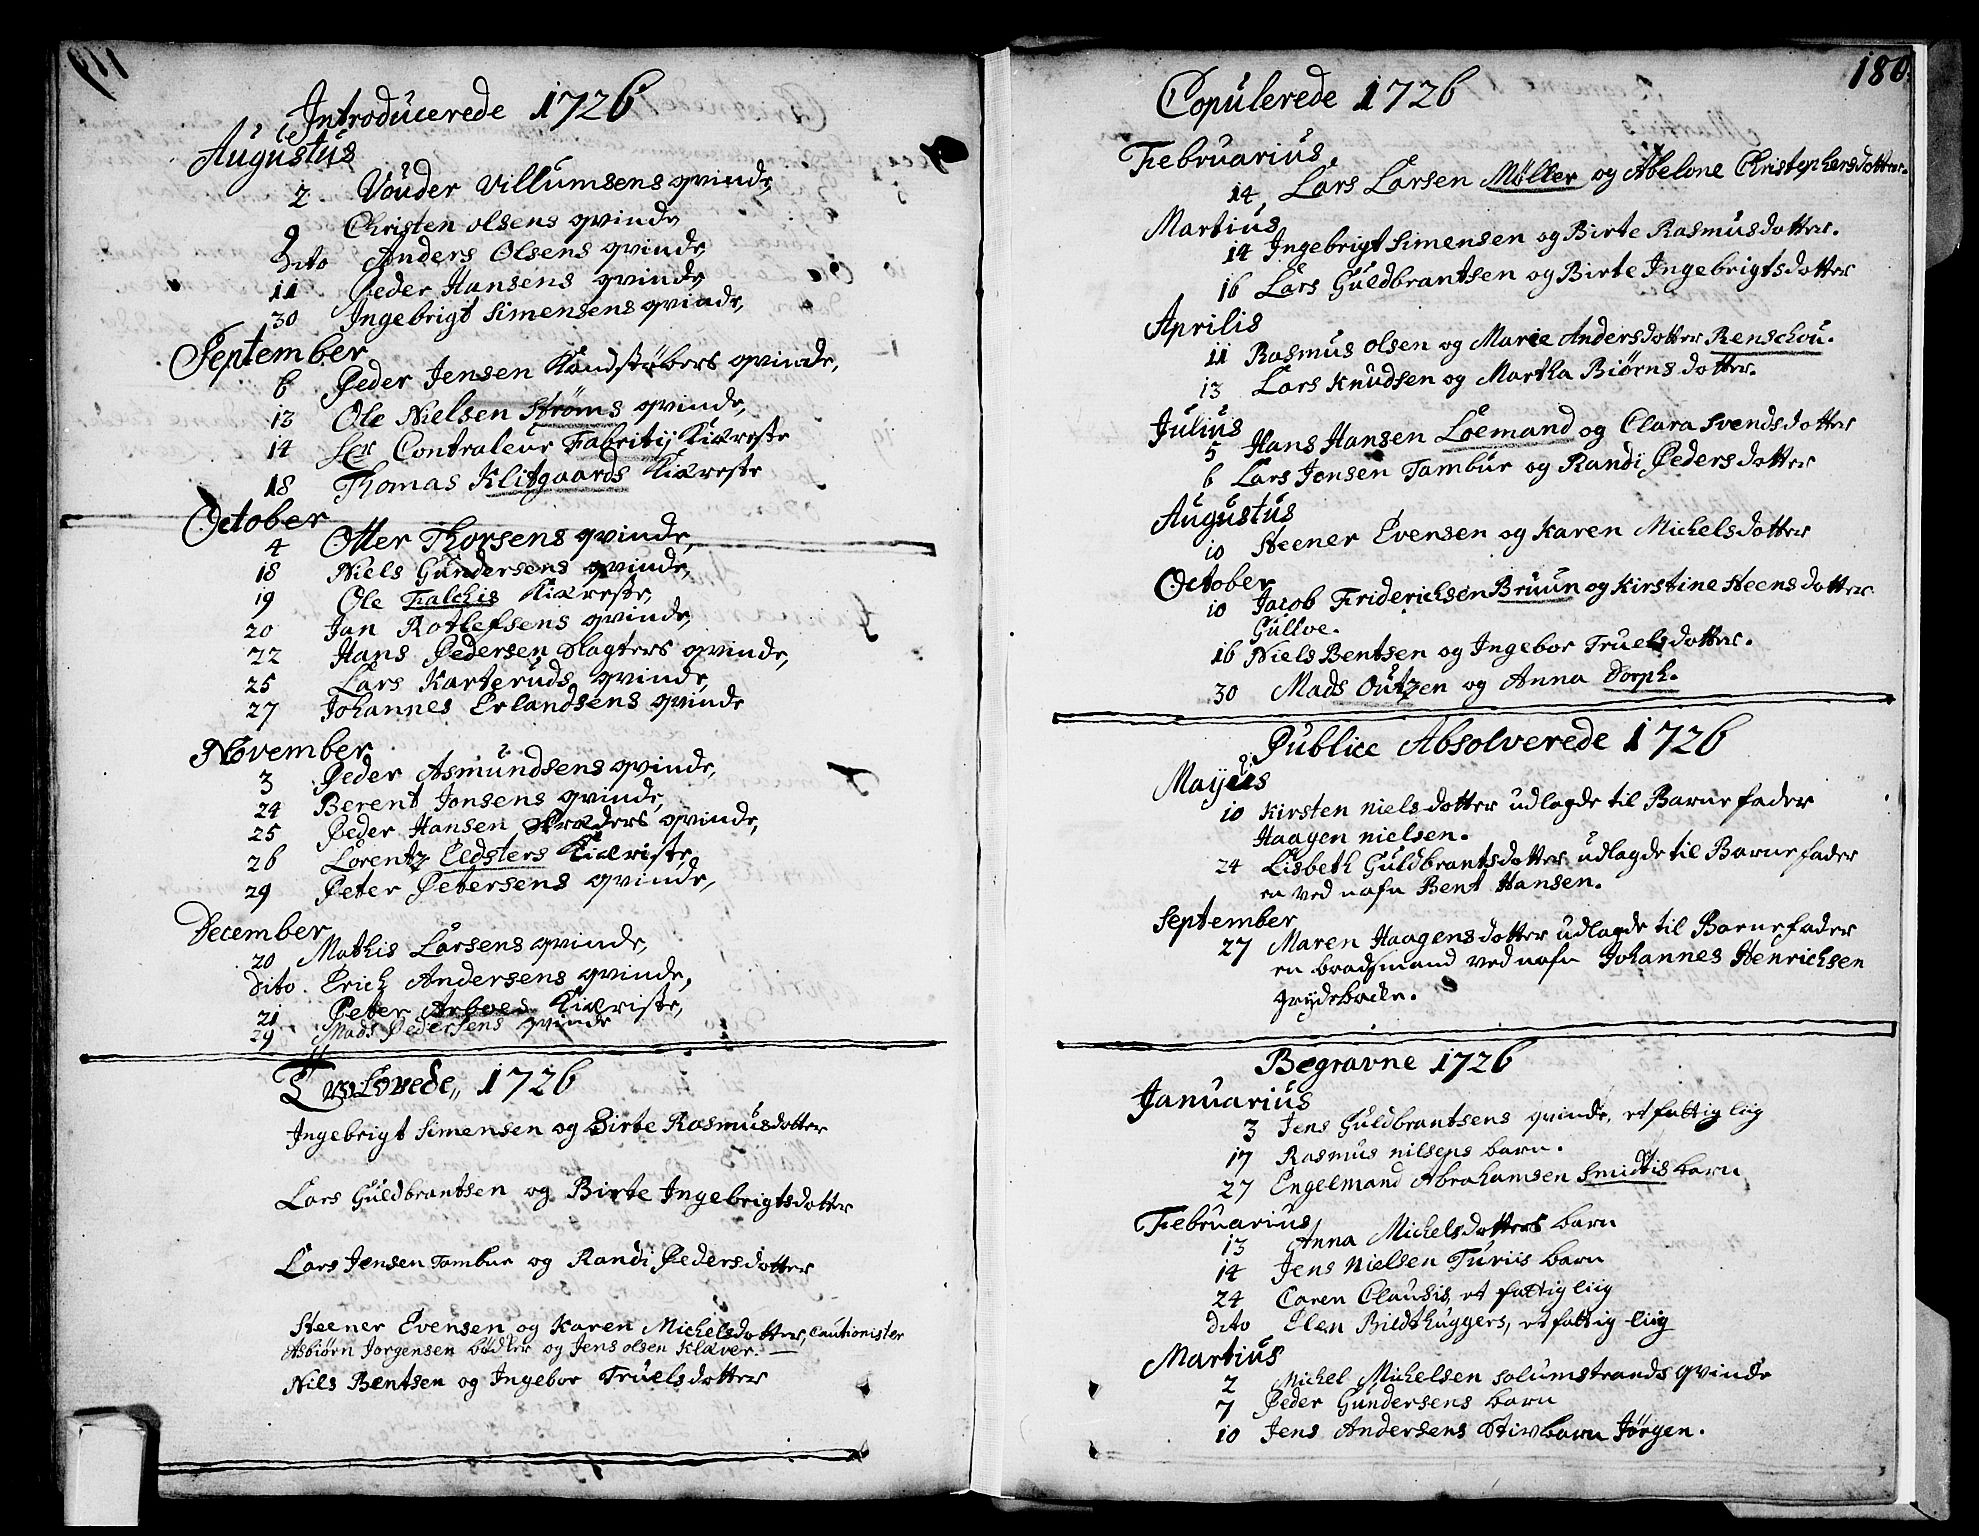 Introducerede 1726
Augustus
2 Vouder Villumsens qvinde,
9 Christen olsens qvinde
Dito Anders Olsens qvinde,
11 Peder Hansens qvinde,
30 Ingebrigt Simensens qvinde,
September
6 Peder Jensen Kandstøbers qvinde,
13 Ole Nielsen Strøms qvinde,
14 Hr Contraleur Fabritij Kiæreste
18 Thomas Klitgaards Kiæreste
October
4 Otter Thorsens qvinde,
18 Niels Gundersens qvinde,
19 Ole Falchis Kiæreste,
20 Jan Rotlefsens qvinde,
22 Hans Pedersen Slagters qvinde,
25 Lars Karteruds qvinde,
27 Johannes Erlandsens qvinde
November
3 Peder Asmundsens qvinde,
24 Berent Jonsens qvinde,
25 Peder Hansen Skræders qvinde,
26 Lorentz Eldsters Kiæriste,
29 Peter Petersens qvinde,
December
20 Mathis Larsens qvinde,
Dito Erich Andersens qvinde,
21 Peter Arboes Kiæriste,
29 Mads Pedersens qvinde
Trolovede, 1726
Ingebrigt Simensen og Birte Rasmusdotter
Lars Guldbrantsen og Birte Ingebrigtsdotter
Lars Jensen Tambur og Randi Pedersdotter
Steener Evensen og Karen Michelsdotter, Cautionister
Asbiørn Jorgensen bødker og Jens olsen Klæver.
Nils Bentsen og Ingebor Truelsdotter
180.
Copulerede 1726
Februarius,
14, Lars Larsen Møller og Abelone Christophersdotter.
Martius
14 Ingebrigt Simensen og Birte Rasmusdotter.
16 Lars Guldbrantsen og Birte Ingebrigtsdotter
Aprilis
11 Rasmus olsen og Marie Andersdotter Renschou.
13 Lars Knudsen og Martha Biørnsdotter.
Julius
5 Hans Hansen Loemand og Clara Svendsdotter
6 Lars Jensen Tambur og Randi Pedersdotter
Augustus
10 Steener Evensen og Karen Michelsdotter
October
10 Jacob Friderichsen Bruun og Kirstine Steensdotter
Gulloe.
16 Niels Bentsen og Ingebor Truelsdotter.
30 Mads Outzen og Anna Dorph.
Publice Absolverede 1726
Majus
10 Kirsten Nielsdotter udlagde til Barnefader
Haagen nielsen.
24 Lisbeth Guldbrantsdotter udlagde til Barnefader
en ved nafn Bent Hansen.
September
27 Maren Haagensdotter udlagde til Barnefader
en bradsmand ved nafn Johannes Henrichsen
Grydebache.
Begravne 1726
Januarius
3 Jens Guldbrantsens qvinde, et fattig liig
17 Rasmus nilsens barn.
27 Engelmand Abrahamsen Smidtis barn
Februarius
13 Anna Michelsdotters barn
14 Jens Nielsen Turiis barn
24 Caren Clausis, et fattig liig
Dito Elen Bildthuggers, et fattig liig
Martius
2 Michel Michelsen Solumstrands qvinde
7 Peder Gundersens barn
10 Jens Andersens Stivbarn Jørgen.